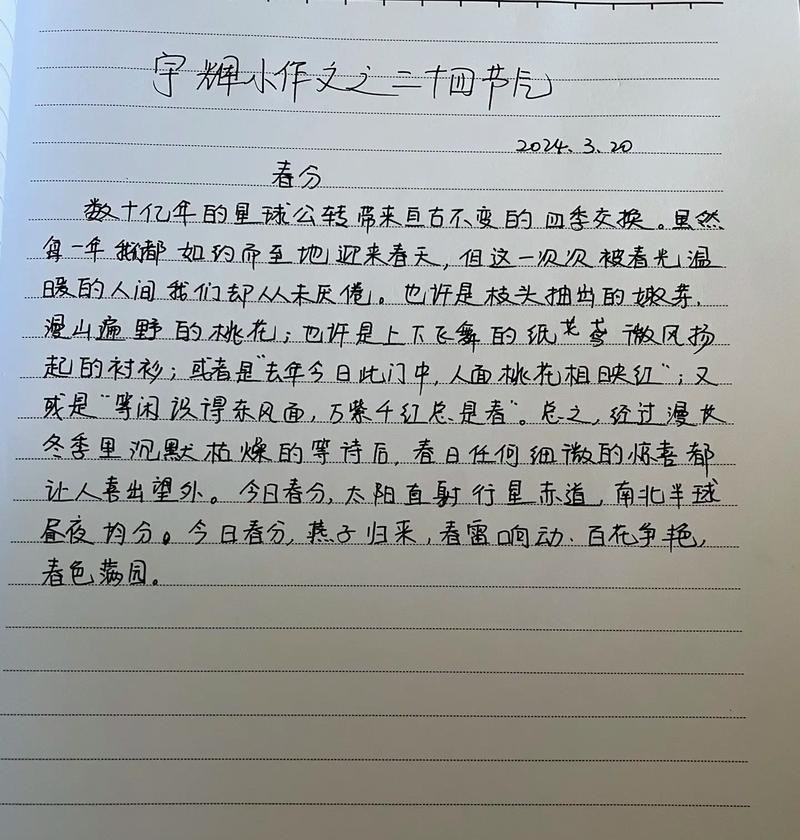 宇辉小作文之二十四节气
2024.3.20
春分
数十亿年的星球公转带来亘古不变的四季交换。虽然
每一年都如约而至地迎来春天，但这一次次被春光温
暖的人间我们却从未厌倦。也许是枝头抽出的嫩芽，
漫山遍野的桃花；也许是上下飞舞的纸鸢微风扬
起的衬衫；或者是"去年今日此门中，人面桃花相映红"；又
或是"等闲识得东风面，万紫千红总是春"。总之，经过漫长
冬季里沉默枯燥的等待后，春日任何细微的惊喜都
让人喜出望外。今日春分，太阳直射行星赤道，南北半球
昼夜均分。今日春分，燕子归来，春雷响动，百花争艳，
春色满园。